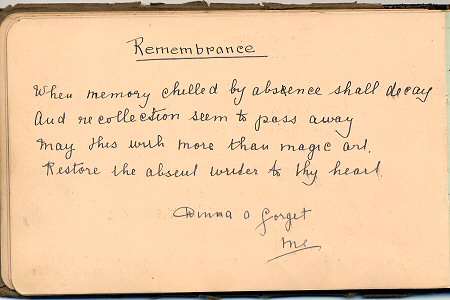 Remembrance
When memory chilled by absence shall decay
And recollection seem to pass away
May this with more than magic art.
Restore the absent writer to thy heart
Dinna o forget
me